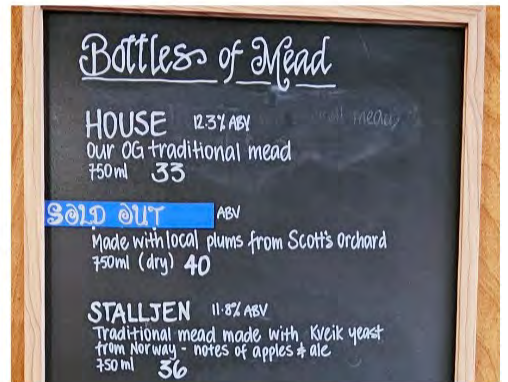 Bottles of Mead
HOUSE 12.3% ABV
our OG traditional mead
750ml 33
SOLD OUT ABV
Made with local plums from Scott's Orchard
750ml (dry) 40
STALLJEN 11.8% ABV
Traditional mead made with Kveik yeast
from Norway - notes of apples & ale
750ml 36